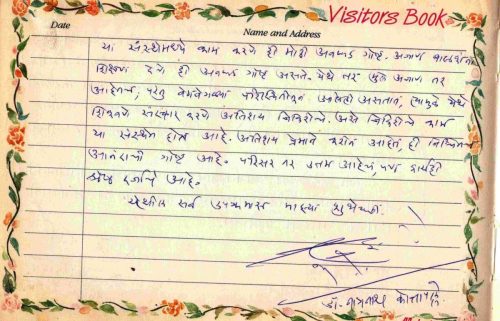 Visitors Book
Date
Name and Address
या संस्थेमध्ये काम करणे ही मोठी अवघड गोष्ट. अजाण बालकांना
शिक्षण देणे ही अवघड गोष्ट असते. येथे तर मुले अजाण तर
आहेतच, परंतु वेगवेगळ्या परिस्थितीतून आलेली असतात, त्यामुळे येथे
शिकवणे संस्कार करणे अतिशय जिकिरीचे. असे जिकिरीचे काम
या संस्थेत होत आहे. अतिशय प्रेमाने करीत आहेत, ही निश्चितच
आनंदाची गोष्ट आहे. परिसर तर उत्तम आहेच, पण कार्यही
श्रेष्ठ दर्जाचे आहे.
येथील सर्व उपक्रमास माझ्या शुभेच्छा
डॉ.